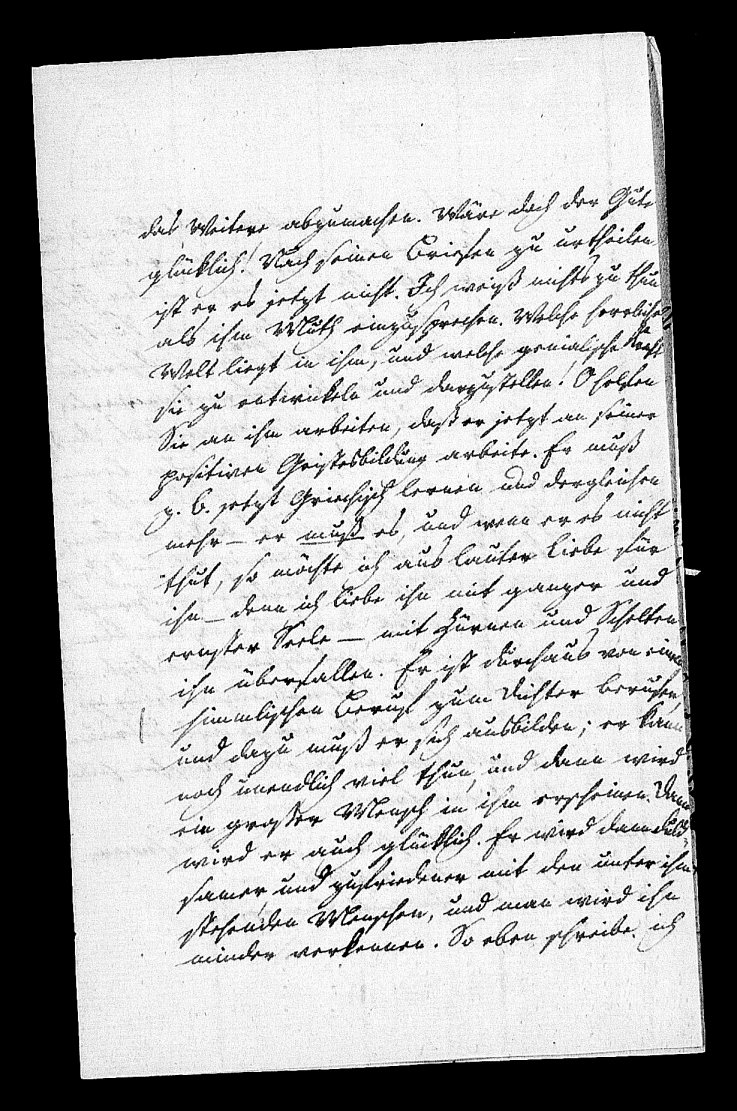 das Weitere abzumachen. Wäre doch der Gute
glücklich! Nach seinen Briefen zu urtheilen
ist er es jetzt nicht. Ich weiß nichts zu thun
als ihm Muth einzusprechen. Welche herrliche
Welt liegt in ihm, und welche genialische Kraft
sie zu entwickeln und darzustellen! O helfen
Sie an ihm arbeiten, daß er jetzt an seiner
positiven Geistesbildung arbeite. Er muß
z. B. jetzt Griechisch lernen und dergleichen
mehr – er muß es, und wenn er es nicht
thut, so möchte ich aus lauter Liebe für
ihn – denn ich liebe ihn mit ganzer und
ernster Seele – mit Zürnen und Schelten
ihn überfallen. Er ist durchaus von einem
himmlischen Beruf zum Dichter berufen,
und dazu muß er sich ausbilden; er kann
noch unendlich viel thun, und dann wird
ein großer Mensch in ihm erscheinen. Dann
wird er auch glücklich. Er wird dann duld-
samer, und zufriedener mit den unter ihm
stehenden Menschen, und man wird ihn
minder verkennen. So eben schreibe ich